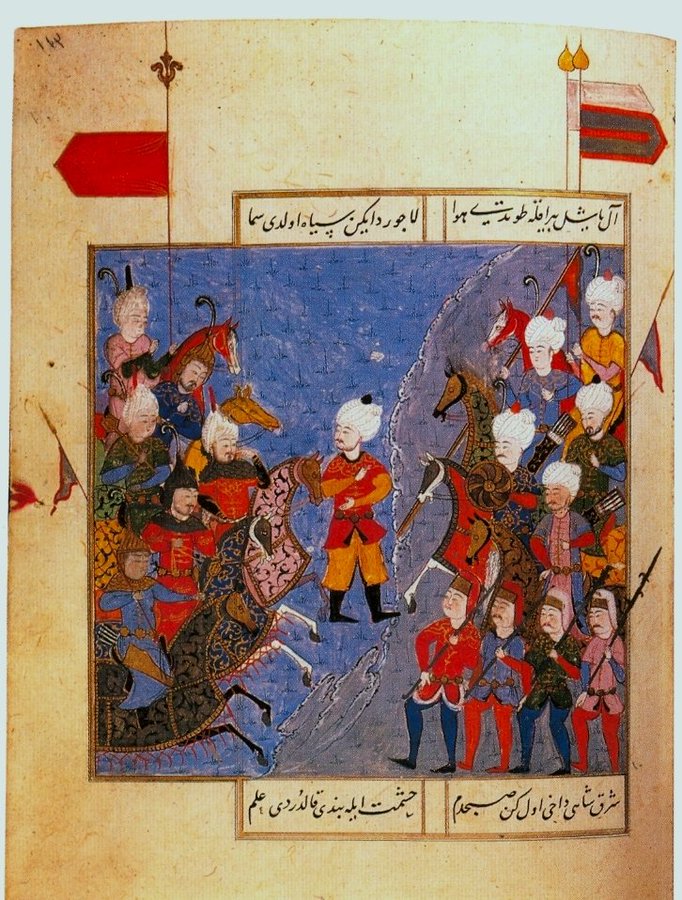 آل یاشل بیراقله طوندی هوا لاجورد ایکن سیاه اولدی سما
شرق شاهی داخی اول کن صبحدم حشمت ایله بندی قالدردی علم